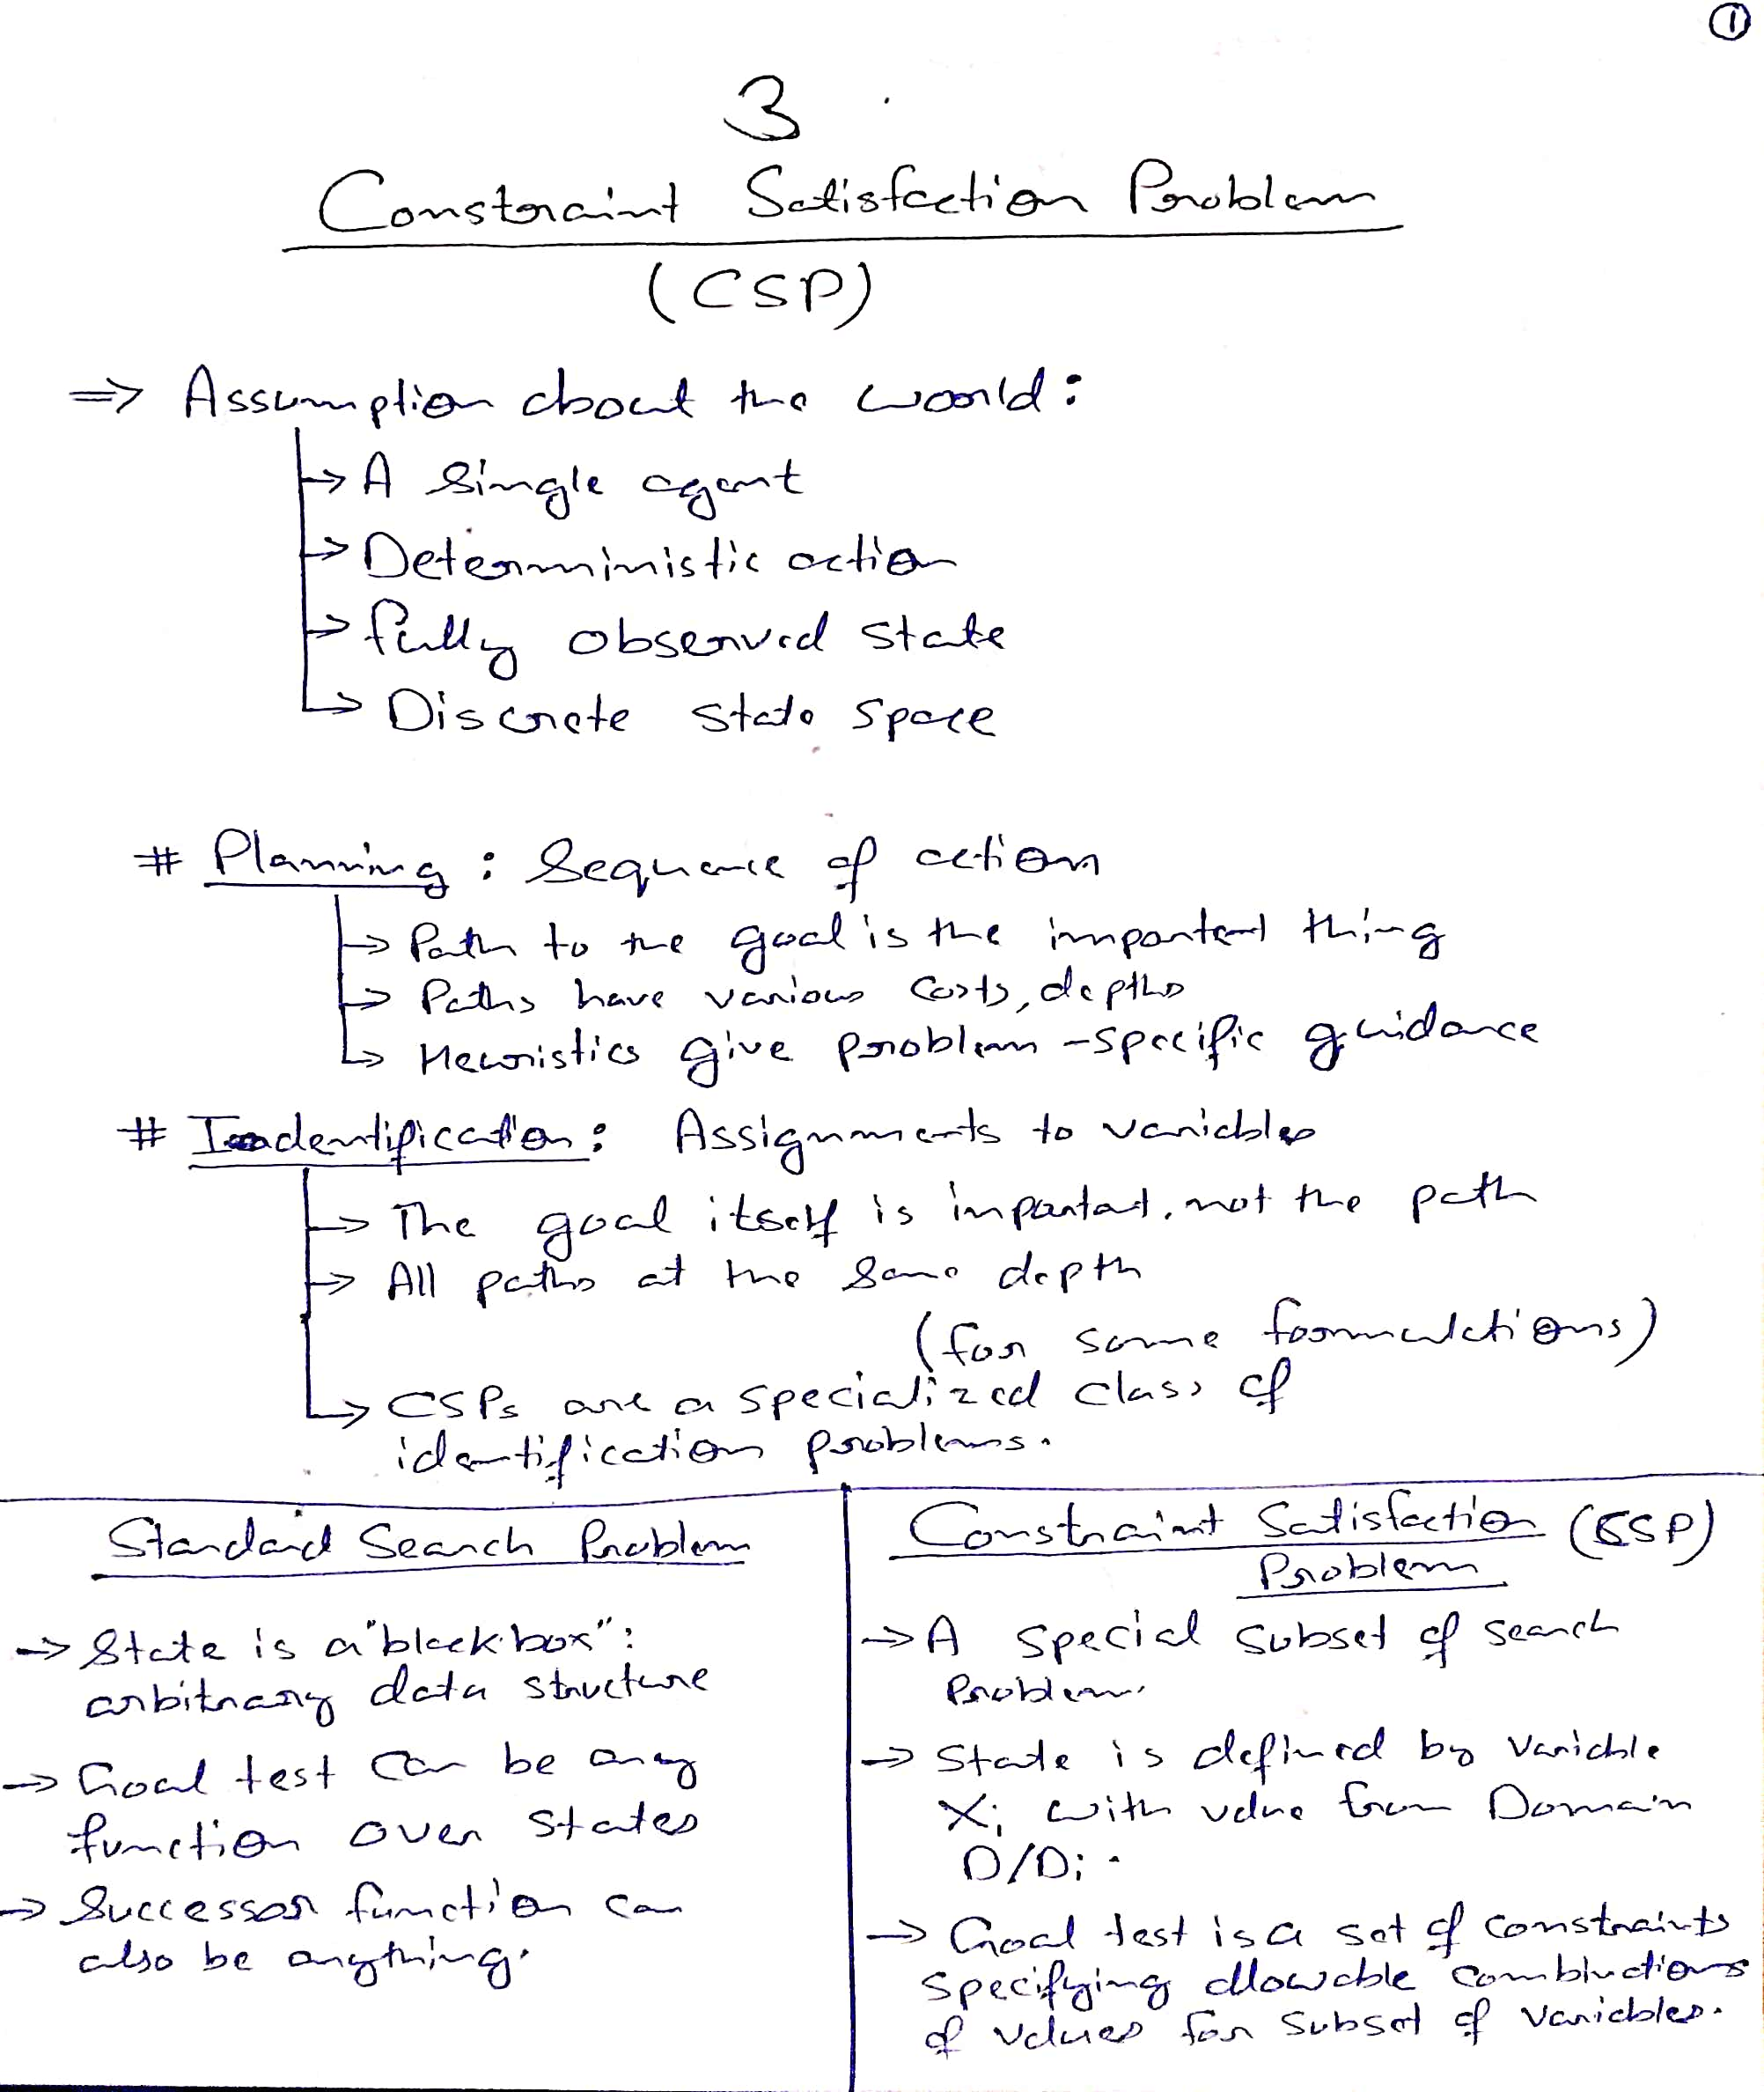 ①
3
Constraint Satisfaction Problem
(CSP)
⇒ Assumption about the world:
→ A single agent
→ Deterministic action
→ fully observed state
→ Discrete state space
# Planning: Sequence of action
→ Path to the goal is the important thing
→ Paths have various costs, depths
→ Heuristics give problem-specific guidance
# Identification: Assignments to variables
→ The goal itself is important, not the path
→ All paths at the same depth
(for some formulations)
→ CSPs are a specialized class of
identification problems.
Standard Search Problem
→ State is a "black box":
arbitrary data structure
→ Goal test can be any
function over states
→ Successor function can
also be anything.
Constraint Satisfaction (CSP)
Problem
→ A special subset of search
Problem.
→ State is defined by variable
Xi with value from Domain
D/Di.
→ Goal test is a set of constraints
specifying allowable combinations
of values for subset of variables.